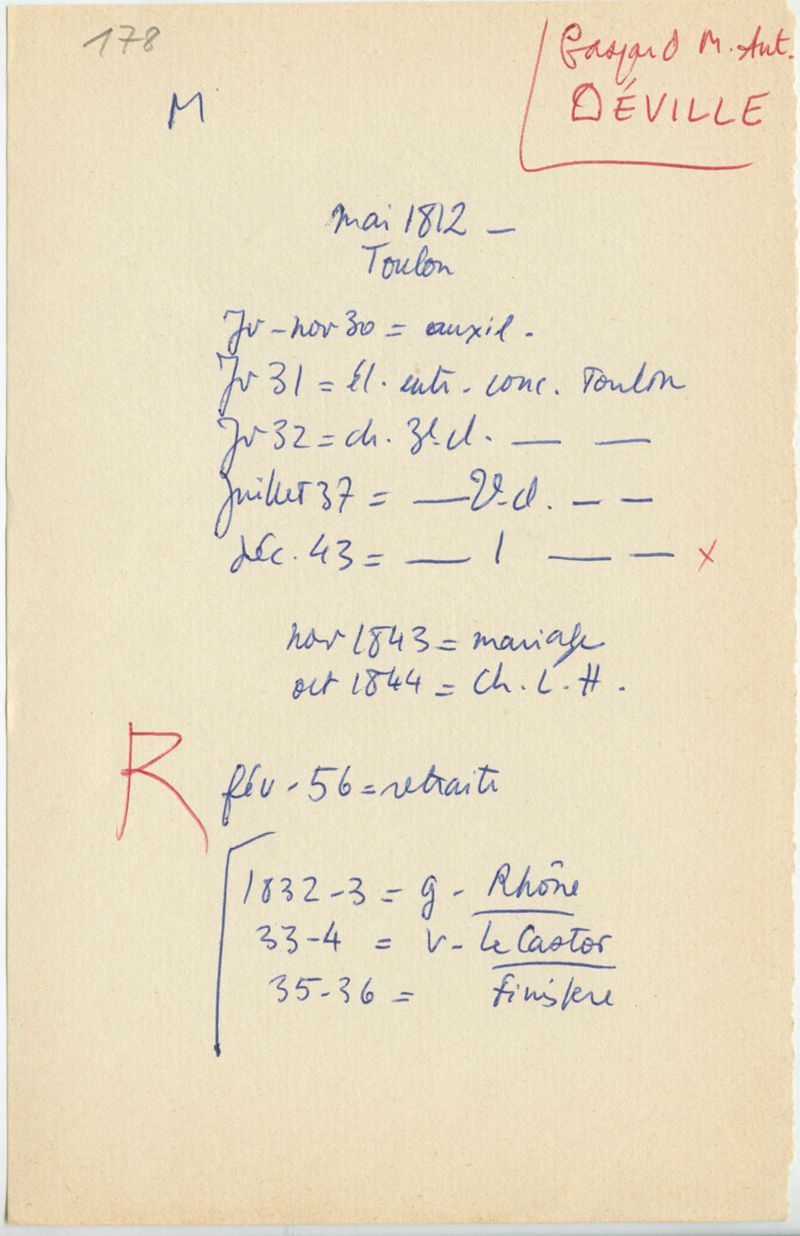 178
Gaspard M. Ant.
DÉVILLE
M
mai 1812 —
Toulon
Jv - nov 30 = auxil.
Jv 31 = él. entr. conc. Toulon
Jv 32 = ch. 3e cl. — —
Juillet 37 = — 2e cl. — —
déc. 43 = — 1 — — x
nov 1843 = mariage
oct 1844 = Ch. L. H.
R
fév - 56 = retraite
1832-3 = g - Rhône
33-4 = v - Le Castor
35-36 = Finistère